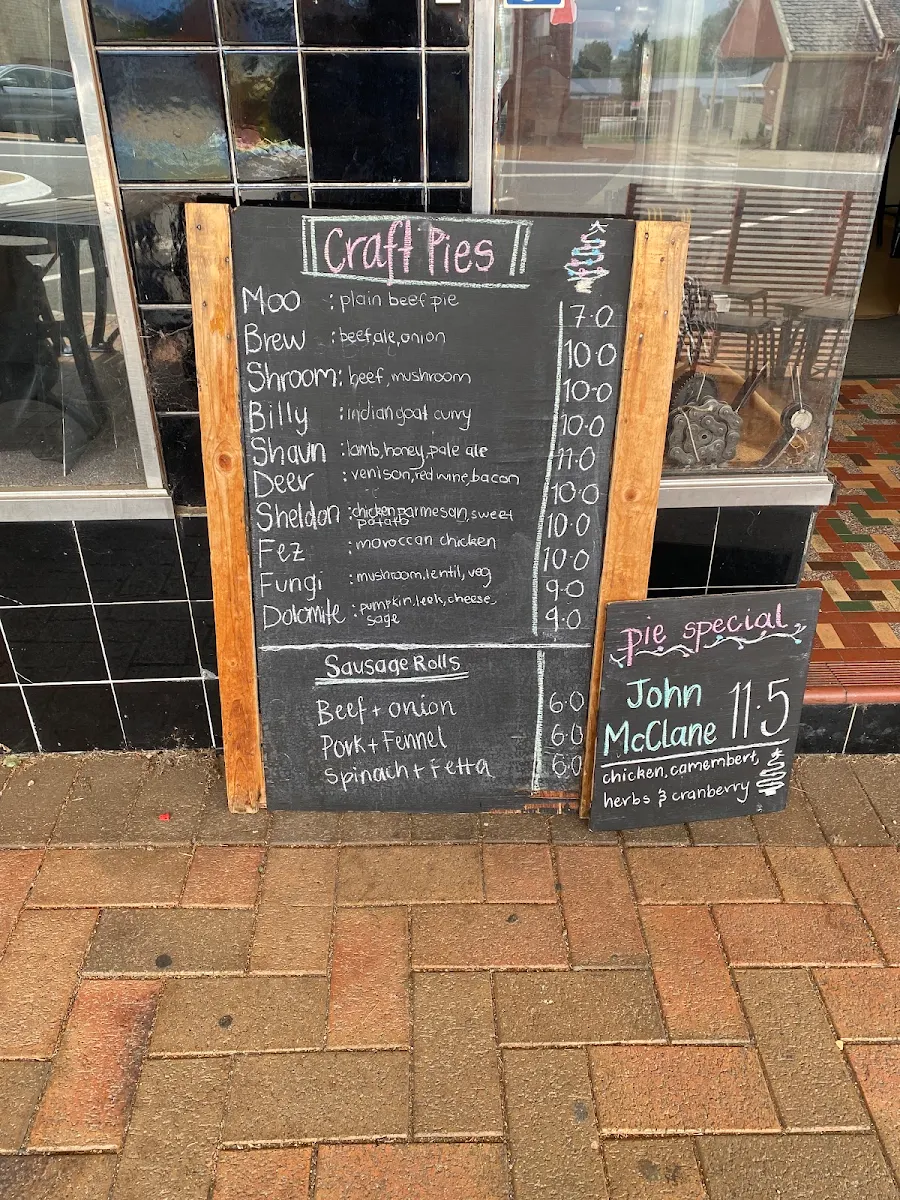 Craft Pies
Moo : plain beef pie 7.0
Brew : beef, ale, onion 10.0
Shroom: beef, mushroom 10.0
Billy : indian goat curry 10.0
Shaun : lamb, honey, pale ale 11.0
Deer : venison, red wine, bacon 10.0
Sheldon : chicken, parmesan, sweet 10.0
potato
Fez : moroccan chicken 10.0
Fungi : mushroom, lentil, veg 9.0
Dolomite : pumpkin, leek, cheese, 9.0
sage
Sausage Rolls
Beef + onion 6.0
Pork + Fennel 6.0
Spinach + Fetta 6.0
pie special
John
McClane 11.5
chicken, camembert,
herbs & cranberry